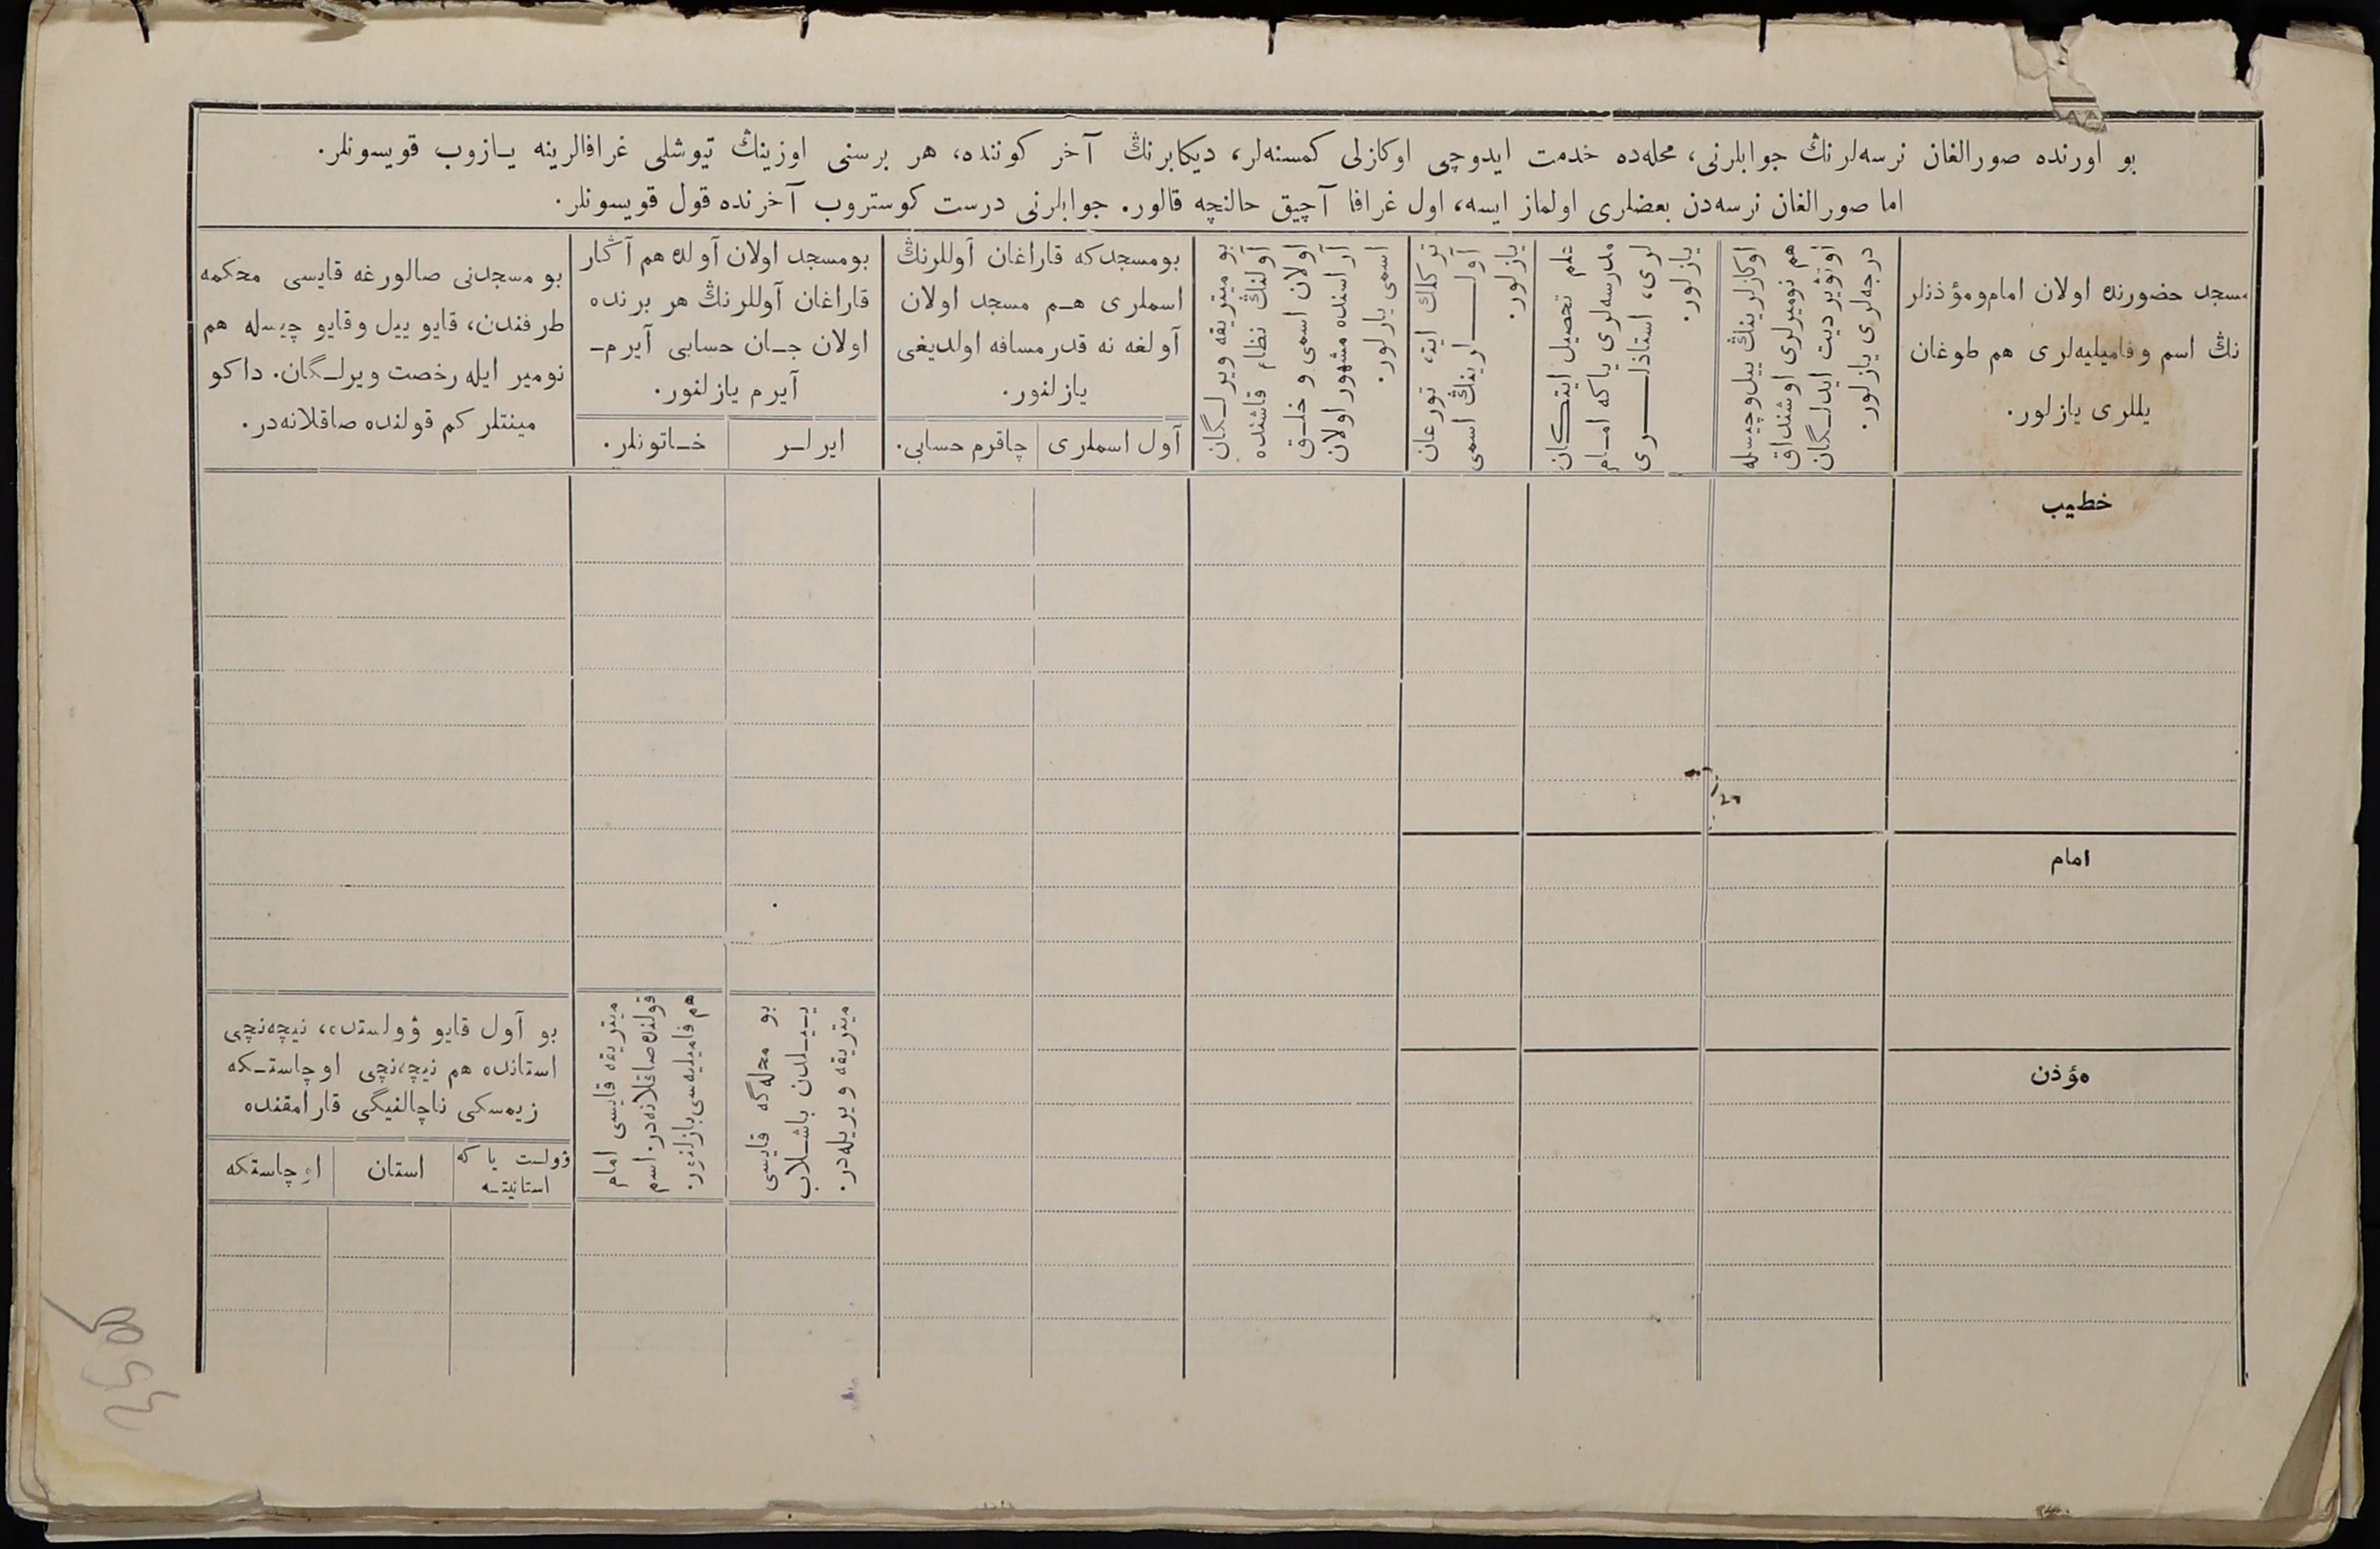 بو اورنده صورالغان نرسه‌لرنڭ جوابلرنی، محله‌ده خدمت ایدوچی اوکازلی کمسنه‌لر، دیکابرنڭ آخر کوننده، هر برسنی اوزینڭ تیوشلی غرافالرینه یـازوب قویسونلر.
اما صورالغان نرسه‌دن بعضلری اولماز ایسه، اول غرافا آچیق حالنچه قالور. جوابلرنی درست کوستروب آخرنده قول قویسونلر.
مسجد حضورنده اولان امام‌ومؤذنلر
نڭ اسم وفامیلیه‌لری هم طوغان
یللری یازلور.
اوکازلرینڭ ییل‌وچیسله
هم نومیرلری اوشنداق
اوتوێردیت ایدلـگان
درجه‌لری یازلور.
علم تحصیل ایتـکان
مدرسه‌لری یاکه امـام
لری، استاذلـــری
یازلور.
ترکلك ایته، تورغان
آولـــلرینڭ اسمی
یازلور.
بو میتریقه ویرلـگان
آولنڭ نظام قاشنده
اولان اسمی و خلـق
آراسنده مشهور اولان
اسمی یازلور.
بومسجدکه قاراغان آوللرنڭ
اسملری هـم مسجد اولان
آولغه نه قدر مسافه اولدیغی
یازلنور.
آول اسملری
چاقرم حسابی.
بومسجد اولان آولده هم آڭار
قاراغان آوللرنڭ هر برنده
اولان جـان حسابی آیرم‌ـ
آیرم یازلنور.
ایرلـر
خـاتونلر.
بو مسجدنی صالورغه قایسی محکمه
طرفندن، قایو ییل وقایو چیسله هم
نومیر ایله رخصت ویرلـگان. داکو
مینتلر کم قولنده صاقلانه‌در.
خطیب
امام
مؤذن
بو محله‌گه قایسی
ییـلدن باشـلاب
میتریقه ویریله‌در.
میتریقه قایسی امام
قولنده‌صاقلانه‌در. اسم
هم فامیلیه‌سی‌یازلنور.
بو آول قایو ۋولستده، نیچه‌نچی
استانده هم نیچه‌نچی اوچاستـکه
زیمسکی ناچالنیگی قارامقنده
ۋولست یاکه
استانیتـسه
استان
اوچاستکه